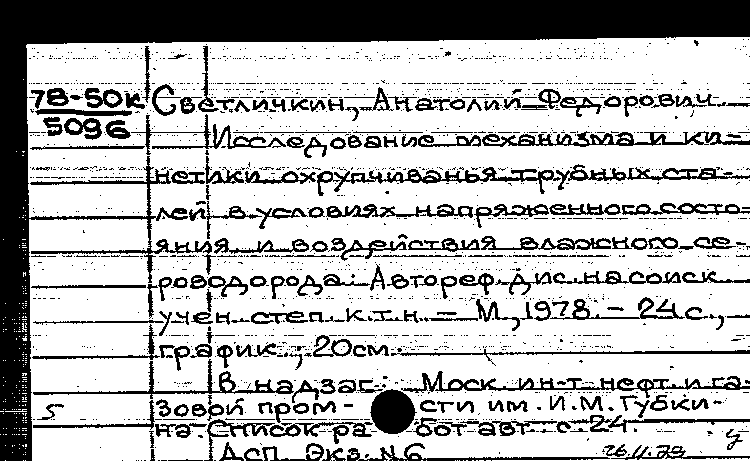 78-50к Светличкин, Анатолий Федорович
5096
Исследование механизма и ки-
нетики охрупчиванья трубных ста-
лей в условиях напряженного состо-
яния и воздействия влажного се-
роводорода: Автореф. дис. на соиск.
учен. степ. к.т.н. - М., 1978. - 24 с.,
график.; 20см.
В надзаг.: Моск. ин-т нефт. и га-
5 зовой пром-сти им. И.М. Губки-
на. Список работ авт.: с. 24.
Дсп. Экз. N6 26.11.79 у